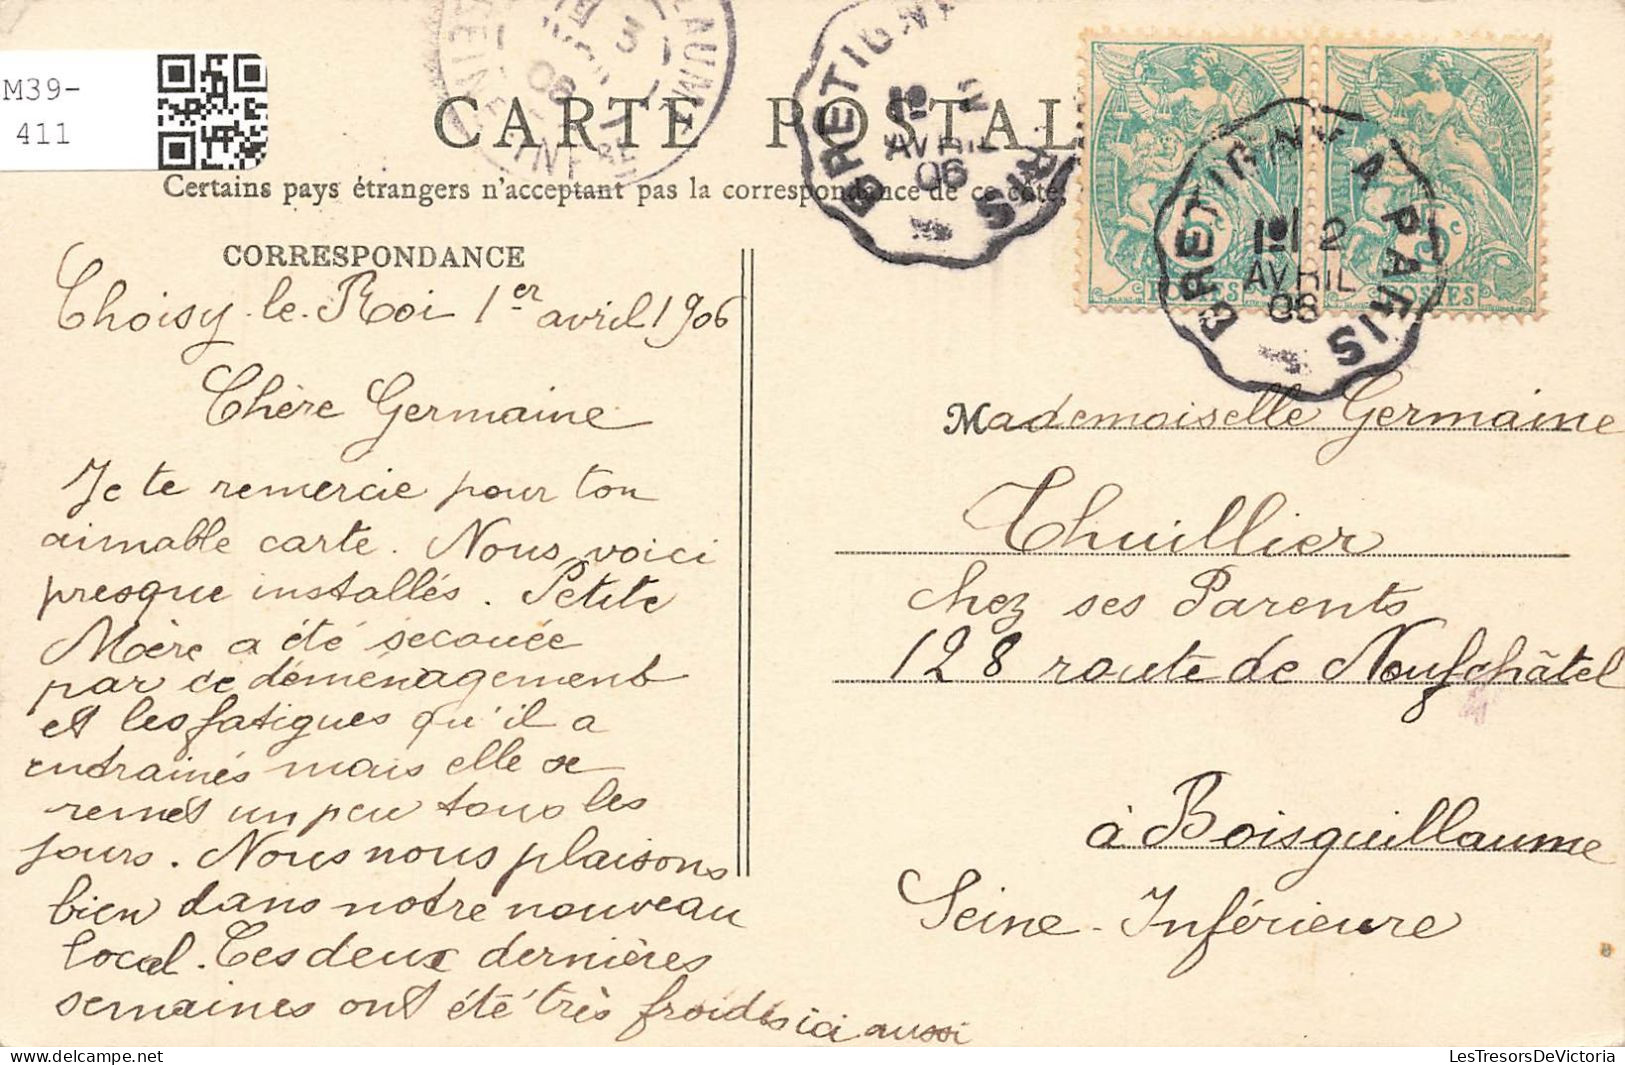 M39-
411
CARTE POSTALE
Certains pays étrangers n'acceptant pas la correspondance de ce côté,
CORRESPONDANCE
Choisy-le-Roi 1er avril 1906
Chère Germaine
Je te remercie pour ton
aimable carte. Nous voici
presque installés. Petite
Mère a été secouée
par ce déménagement
et les fatigues qu'il a
entrainés mais elle se
remet un peu tous les
jours. Nous nous plaisons
bien dans notre nouveau
local. Ces deux dernières
semaines ont été très froides ici aussi
BRETIGNY
PARIS
2
AVRIL
06
BRETIGNY A PARIS
1º 2
AVRIL
06
5c
5c
POSTES
POSTES
Mademoiselle Germaine
Thuillier
chez ses Parents
128 route de Neufchâtel
à Boisguillaume
Seine-Inférieure
LesTresorsDeVictoria